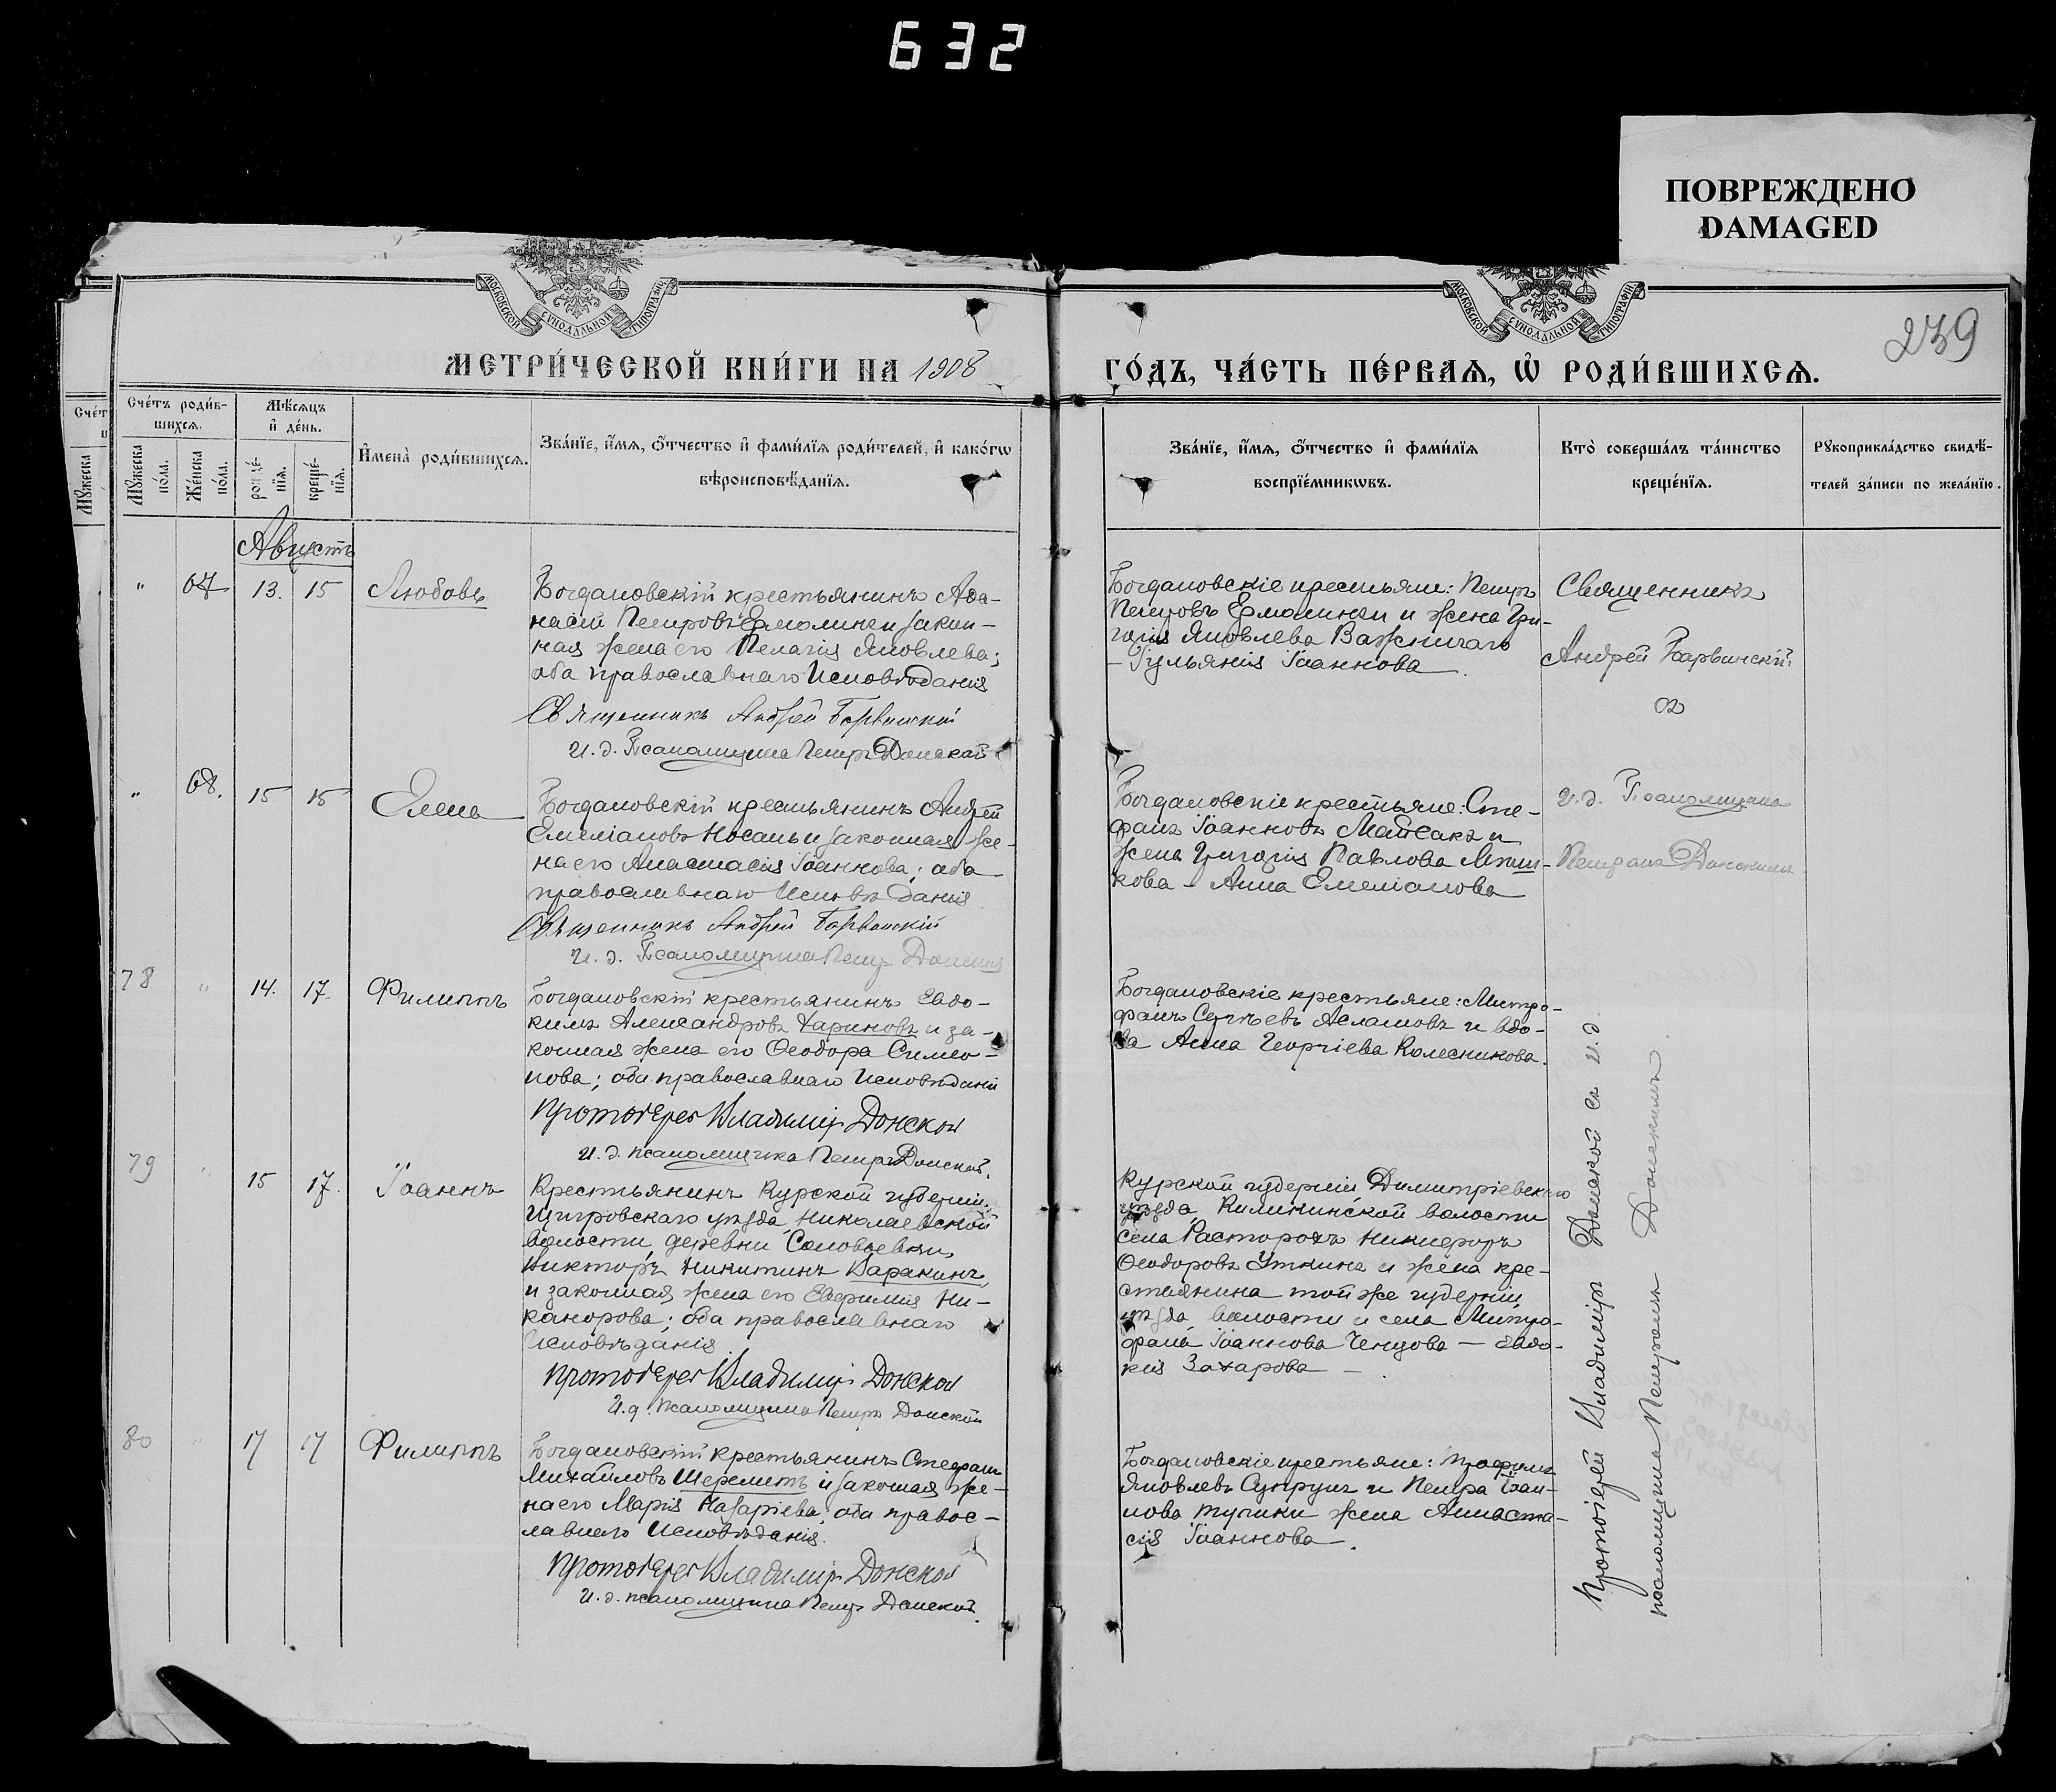 632
ПОВРЕЖДЕНО
DAMAGED
МОСКОВСКОЙ СѴНОДАЛЬНОЙ ТИПОГРАФІИ
МОСКОВСКОЙ СѴНОДАЛЬНОЙ ТИПОГРАФІИ
239
МЕТРИ́ЧЕСКОЙ КНИ́ГИ НА 1908
ГО́ДЪ, ЧА́СТЬ ПЕ́РВАѦ, Ѡ҆ РОДИ́ВШИХСѦ.
Сче́тъ роди́в-
шихсѧ.
Мѣ́сѧцъ
и҆ де́нь.
Мꙋжеска
по́ла.
Же́нска
по́ла.
рожде́-
нїѧ.
креще́-
нїѧ.
И҆мена̀ роди́вшихсѧ.
Зва́нїе, и҆́мѧ, ѻ҆́тчество и҆ фами́лїѧ роди́телей, и҆ како́гѡ
вѣроисповѣ́данїѧ.
Зва́нїе, и҆́мѧ, ѻ҆́тчество и҆ фами́лїѧ
воспрїе́мникѡвъ.
Кто̀ соверша́лъ та́инство
креще́нїѧ.
Рꙋкоприкла́дство свидѣ́-
телей за́писи по жела́нїю.
Августъ
" 67 13. 15 Любовь
Богдановскій крестьянинъ Афа-
насій Петровъ Ермолинъ и закон-
ная жена его Пелагія Яковлева;
оба православнаго исповѣданія
Священникъ Андрей Барвинскій
И. д. Псаломщика Петръ Донской
Богдановскіе крестьяне: Петръ
Петровъ Ермолинъ и жена Гри-
горія Яковлева Важничаго
– Іульянія Іоаннова.
Священникъ
Андрей Барвинскій
съ
и. д. Псаломщика
Петромъ Донскимъ
" 68. 15 15 Елена
Богдановскій крестьянинъ Андрей
Емеліановъ Носань и законная же-
на его Анастасія Іоаннова; оба
православнаго исповѣданія
Священникъ Андрей Барвинскій
И. д. Псаломщика Петръ Донской
Богдановскіе крестьяне: Сте-
фанъ Іоанновъ Майсакъ и
жена Григорія Павлова
кова – Анна Емеліанова
78 " 14. 17. Филиппъ
Богдановскій крестьянинъ Евдо-
кимъ Александровъ Хариновъ и за-
конная жена его Ѳеодора Симео-
нова; оба православнаго исповѣданія
Протоіерей Владиміръ Донской
И. д. псаломщика Петръ Донской.
Богдановскіе крестьяне: Митро-
фанъ Сергѣевъ Аслановъ и вдо-
ва Анна Георгіева Колесникова.
79 " 15 17. Іоаннъ
Крестьянинъ Курской губерніи
Щигровскаго уѣзда, Николаевской
волости, деревни Соловьевки
Викторъ Никитинъ Каракинъ
и законная жена его Евфимія Ни-
канорова; оба православнаго
исповѣданія
Протоіерей Владиміръ Донской
И. д. Псаломщика Петръ Донской
Курской губерніи, Димитріевскаго
уѣзда, волости
села Расторогъ Никифоръ
Ѳеодоровъ Уткинъ и жена кре-
стьянина той же губерніи,
уѣзда, волости и села Митро-
фана Іоаннова Ченцова – Евдо-
кія Захарова –.
80 " 17 17 Филиппъ
Богдановскій крестьянинъ Стефанъ
Михайловъ Шереметъ и законная же-
на его Марія Назаріева; оба правос-
лавнаго исповѣданія.
Протоіерей Владиміръ Донской
И. д. псаломщика Петръ Донской.
Богдановскіе крестьяне: Трофимъ
Яковлевъ Супрунъ и Петра Іоан-
нова жена Анаста-
сія Іоаннова –.
Протоіерей Владиміръ Донской съ и. д.
псаломщика Петромъ Донскимъ.